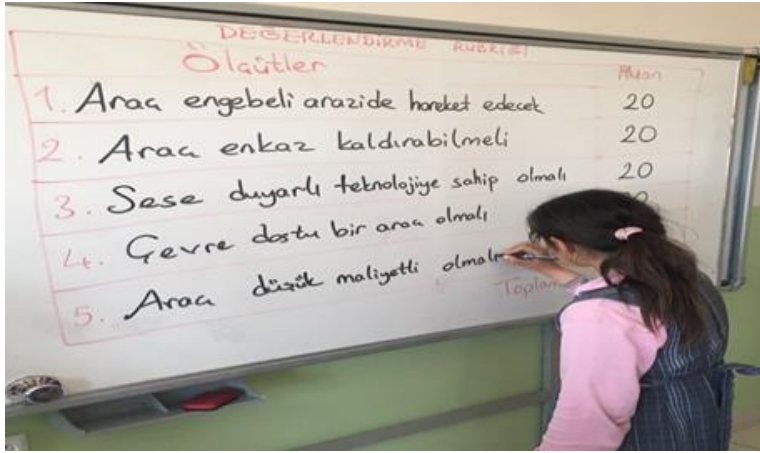 DEĞERLENDİRME RUBRİĞİ
Ölçütler Puan
1. Araç engebeli arazide hareket edecek 20
2. Araç enkaz kaldırabilmeli 20
3. Sese duyarlı teknolojiye sahip olmalı 20
4. Çevre dostu bir araç olmalı
5. Araç düşük maliyetli
Toplam